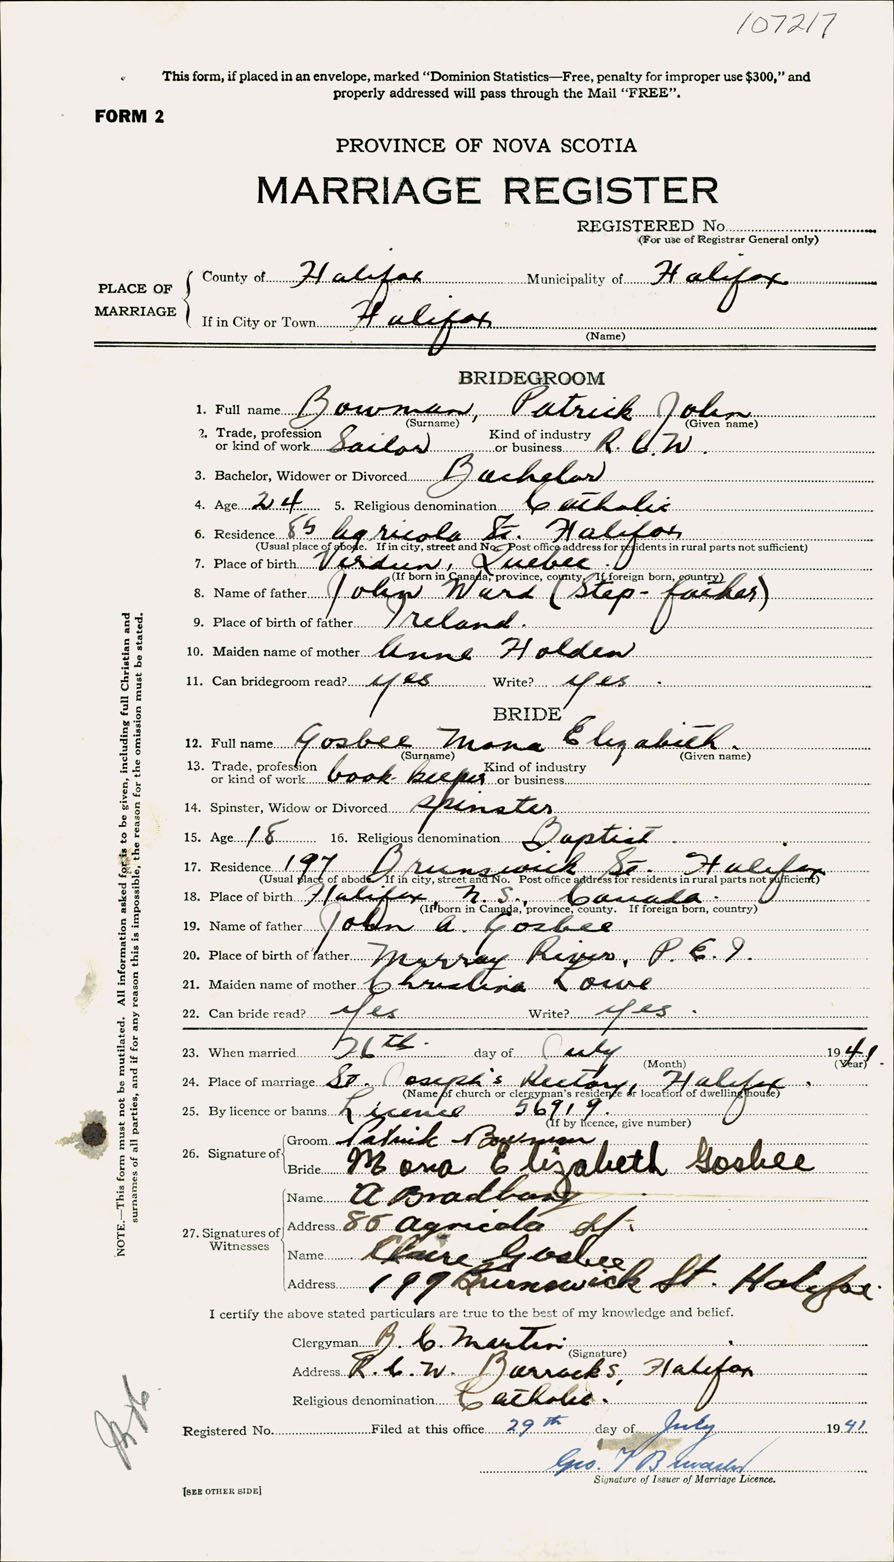 107217
This form, if placed in an envelope, marked "Dominion Statistics—Free, penalty for improper use $300," and
properly addressed will pass through the Mail "FREE".
FORM 2
PROVINCE OF NOVA SCOTIA
MARRIAGE REGISTER
REGISTERED No.
(For use of Registrar General only)
PLACE OF MARRIAGE
County of Halifax Municipality of Halifax
If in City or Town Halifax
(Name)
BRIDEGROOM
1. Full name Bowman, Patrick John
(Surname) (Given name)
2. Trade, profession or kind of work Sailor Kind of industry or business R.C.N.
3. Bachelor, Widower or Divorced Bachelor
4. Age 24 5. Religious denomination Catholic
6. Residence 85 Agricola St. Halifax
(Usual place of abode. If in city, street and No. Post office address for residents in rural parts not sufficient)
7. Place of birth Verdun, Quebec.
(If born in Canada, province, county. If foreign born, country)
8. Name of father John Ward (Step-father)
9. Place of birth of father Ireland.
10. Maiden name of mother Anne Holden
11. Can bridegroom read? yes Write? yes.
BRIDE
12. Full name Gosbee Mona Elizabeth.
(Surname) (Given name)
13. Trade, profession or kind of work book-keeper Kind of industry or business
14. Spinster, Widow or Divorced spinster
15. Age 18 16. Religious denomination Baptist
17. Residence 197 Brunswick St. Halifax
(Usual place of abode. If in city, street and No. Post office address for residents in rural parts not sufficient)
18. Place of birth Halifax, N.S., Canada.
(If born in Canada, province, county. If foreign born, country)
19. Name of father John A. Gosbee
20. Place of birth of father Murray River, P.E.I.
21. Maiden name of mother Christina Lowe
22. Can bride read? Yes Write? Yes.
23. When married 26th. day of July 1941.
(Month) (Year)
24. Place of marriage St. Joseph's Rectory, Halifax.
(Name of church or clergyman's residence or location of dwelling house)
25. By licence or banns Licence 56919.
(If by licence, give number)
26. Signature of
Groom Patrick Bowman
Bride Mona Elizabeth Gosbee
27. Signatures of Witnesses
Name A
Address 85 Agricola St.
Name Claire Gosbee
Address 199 Brunswick St. Halifax.
I certify the above stated particulars are true to the best of my knowledge and belief.
Clergyman B. C. Martin
(Signature)
Address R.C.N. Barracks, Halifax
Religious denomination Catholic.
Registered No. Filed at this office 29th day of July 1941
Geo. 
Signature of Issuer of Marriage Licence.
[SEE OTHER SIDE]
NOTE.—This form must not be mutilated. All information asked for is to be given, including full Christian and
surnames of all parties, and if for any reason this is impossible, the reason for the omission must be stated.